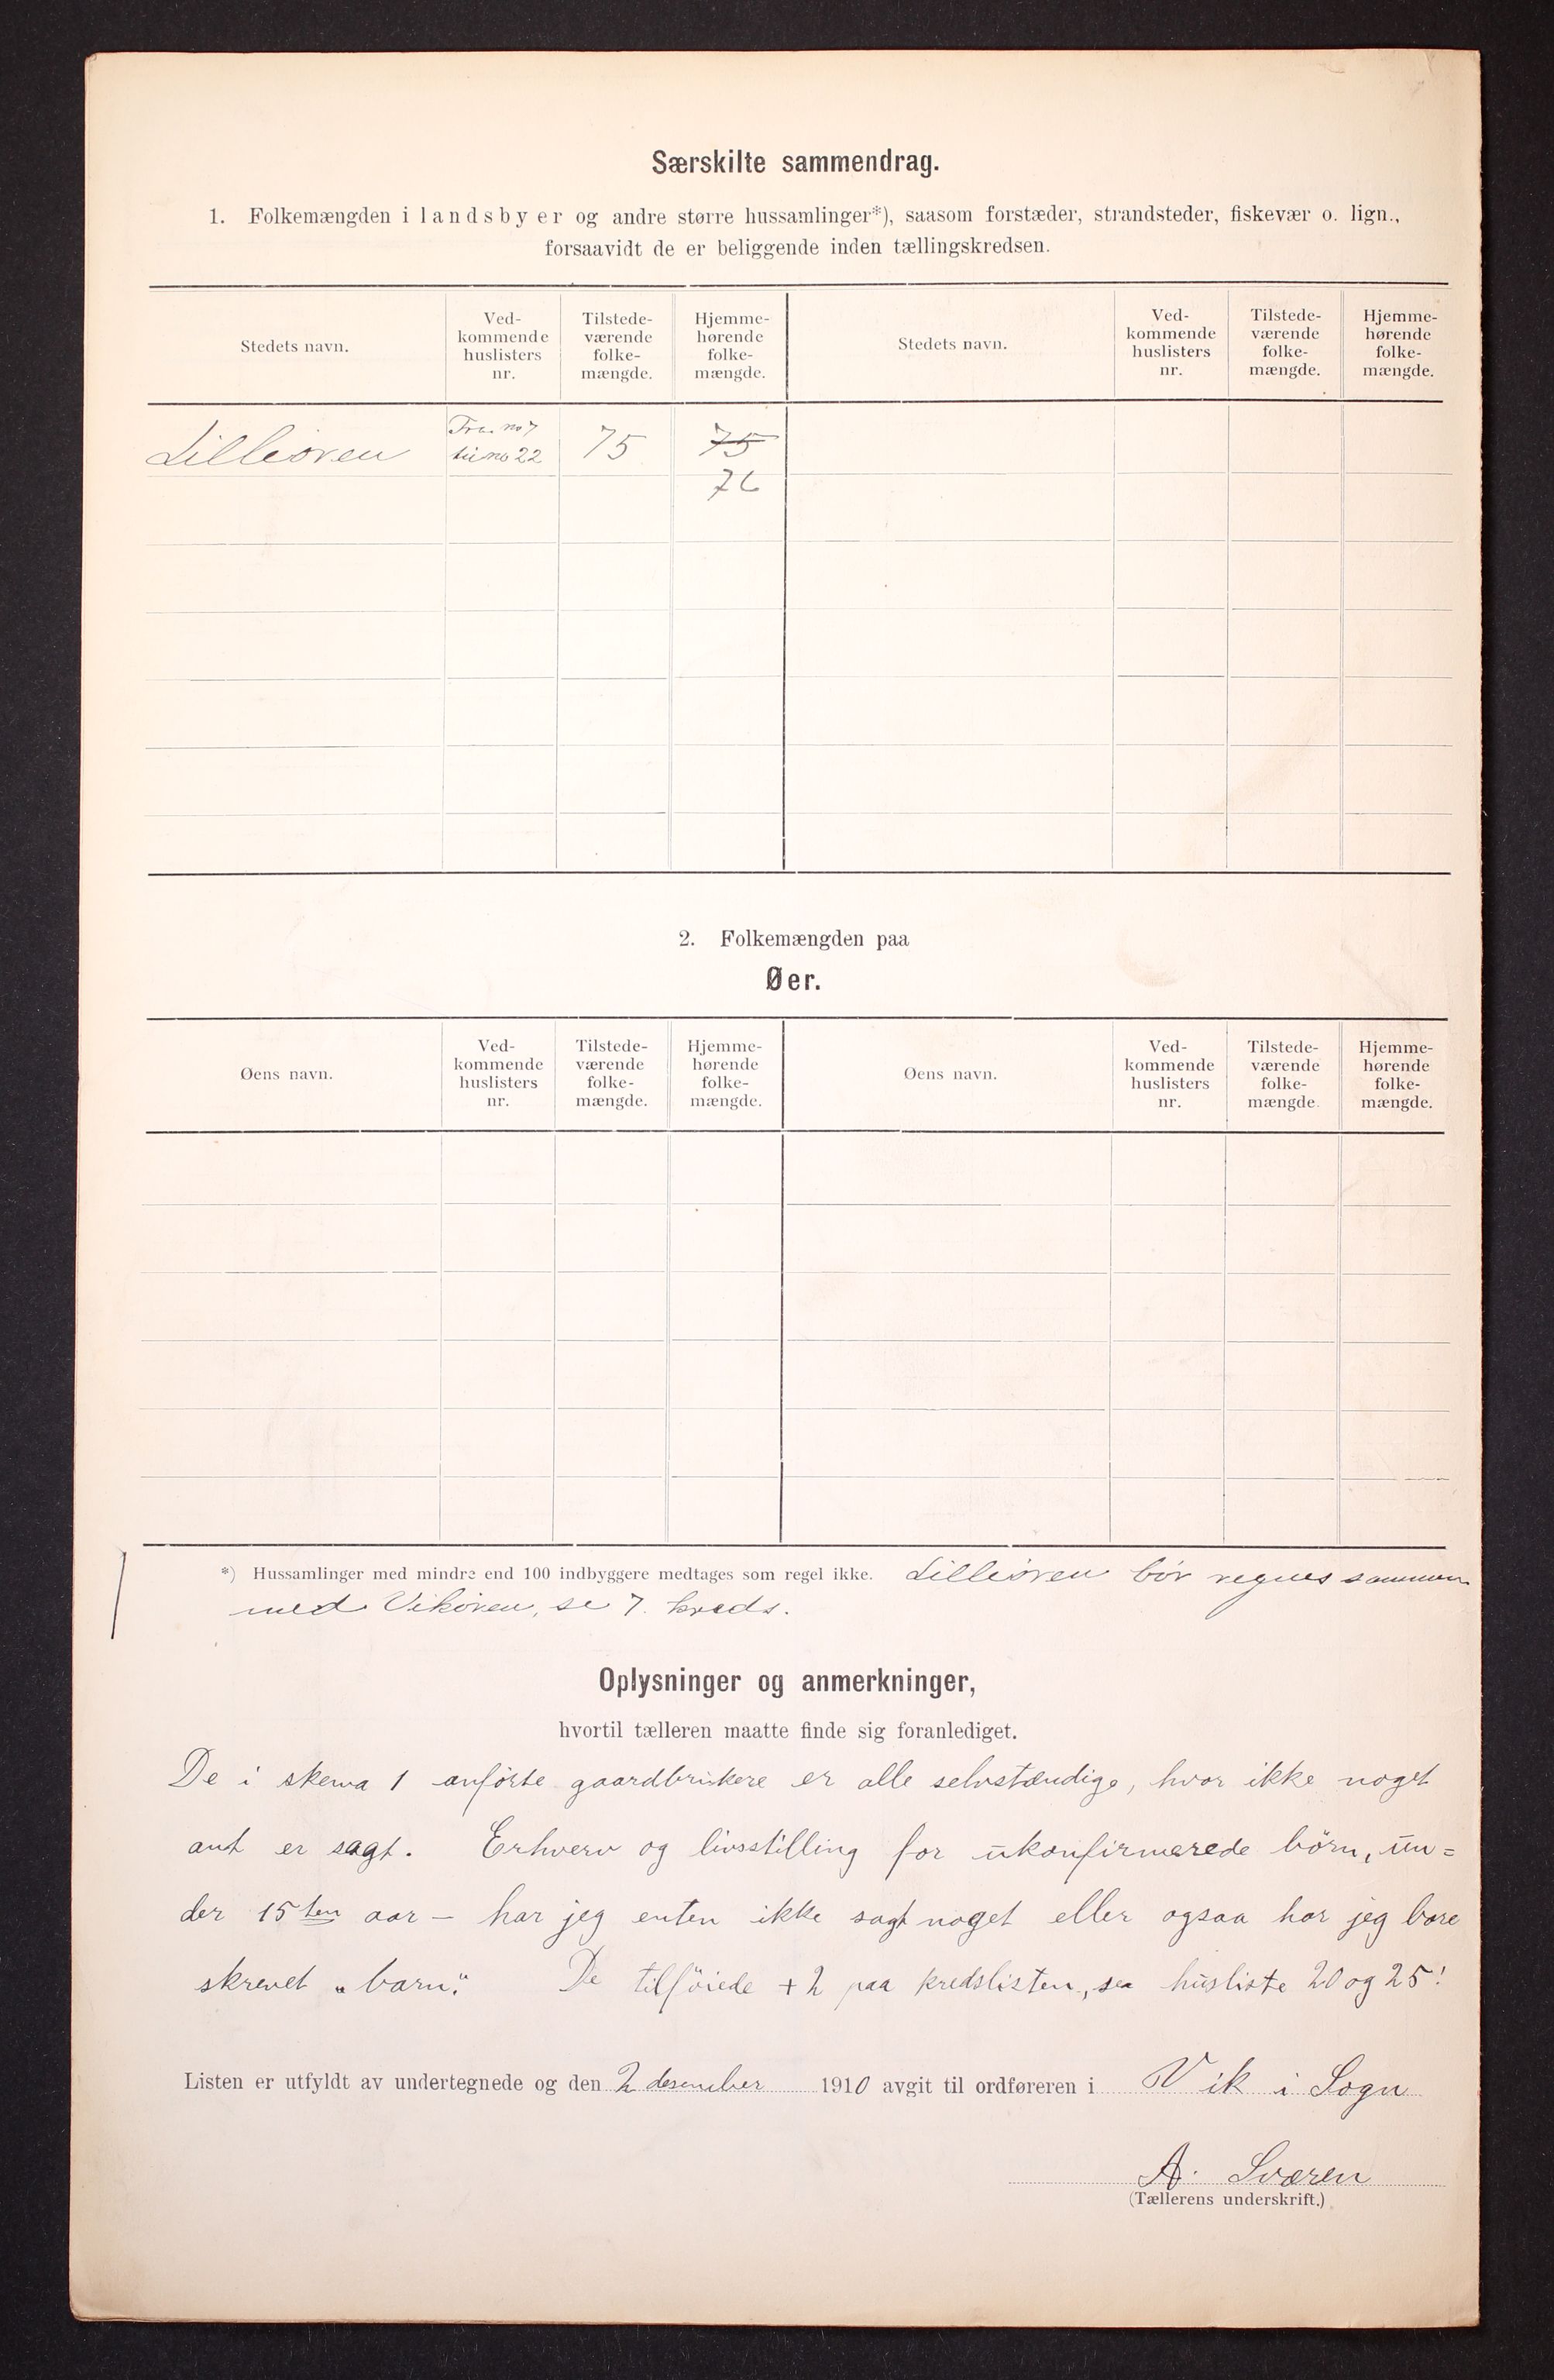 Særskilte sammendrag.
1. Folkemængden i landsbyer og andre større hussamlinger*), saasom forstæder, strandsteder, fiskevær o. lign.,
forsaavidt de er beliggende inden tællingskredsen.
Stedets navn.
Ved-
kommende
huslisters
nr.
Tilstede-
værende
folke-
mængde.
Hjemme-
hørende
folke-
mængde.
Stedets navn.
Ved-
kommende
huslisters
nr.
Tilstede-
værende
folke-
mængde.
Hjemme-
hørende
folke-
mængde.
Lilleøren
Fra no 7
til no 22
75
75
76
2. Folkemængden paa
Øer.
Øens navn.
Ved-
kommende
huslisters
nr.
Tilstede-
værende
folke-
mængde.
Hjemme-
hørende
folke-
mængde.
Øens navn.
Ved-
kommende
huslisters
nr.
Tilstede-
værende
folke-
mængde
Hjemme-
hørende
folke-
mængde.
*) Hussamlinger med mindre end 100 indbyggere medtages som regel ikke. Lilleøren bör regnes sammen
med Vikøren, se 7. kreds.
Oplysninger og anmerkninger,
hvortil tælleren maatte finde sig foranlediget.
De i skema 1 anförte gaardbrukere er alle selvstændige, hvor ikke noget
ant er sagt. Erhverv og livsstilling for ukonfirmerede börn, un=
der 15ten aar – har jeg enten ikke sagt noget eller ogsaa har jeg bare
skrevet "barn". De tilföiede + 2 paa kredslisten, sea husliste 20 og 25!
Listen er utfyldt av undertegnede og den 2 desember 1910 avgit til ordføreren i Vik i Sogn
A. Sværen
(Tællerens underskrift.)